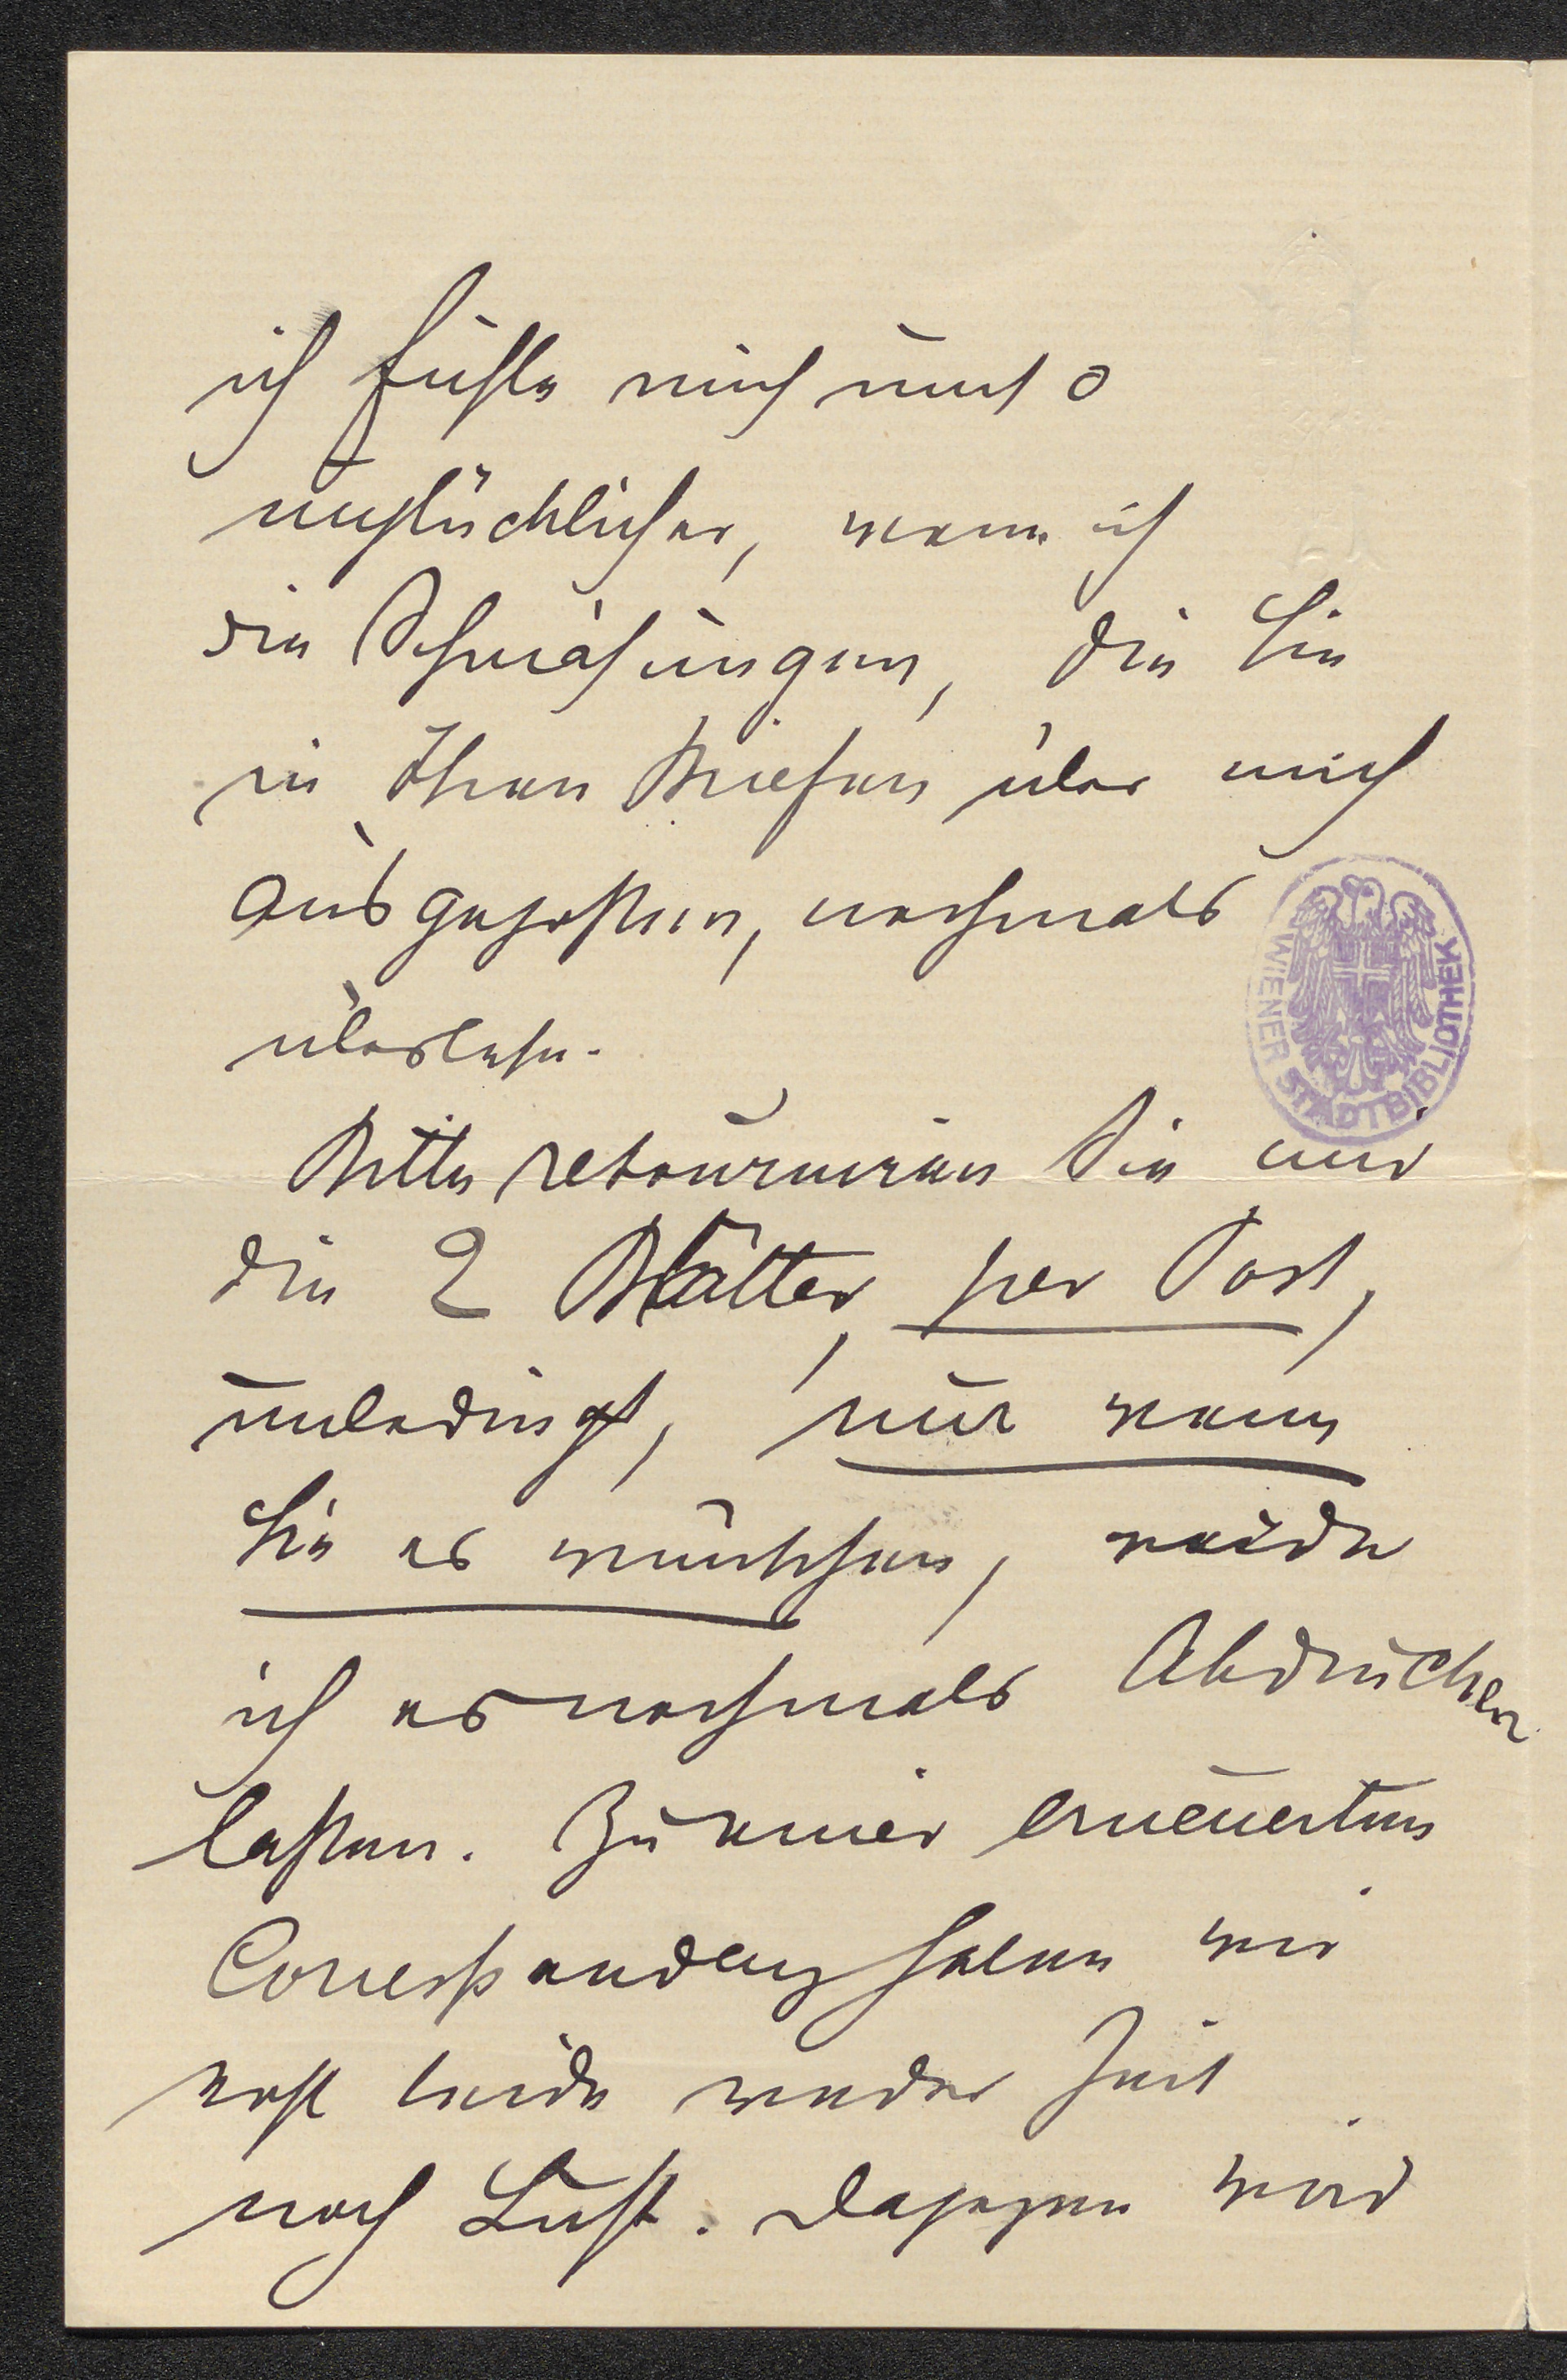 ich fühle mich umso
unglücklicher, wenn ich
die Schmähungen, die Sie
in Ihren Briefen über mich
ausgegossen, nochmals
überlese.
WIENER STADTBIBLIOTHEK
Bitte retournieren Sie mir
die 2 Blätter, per Post,
unbedingt, nur wenn
Sie es wünschen, werde
ich es nochmals Abdrucken
lassen. Zu einer erneuerten
Correspondenz haben wir
wohl beide weder Zeit
noch Lust. Dagegen wird